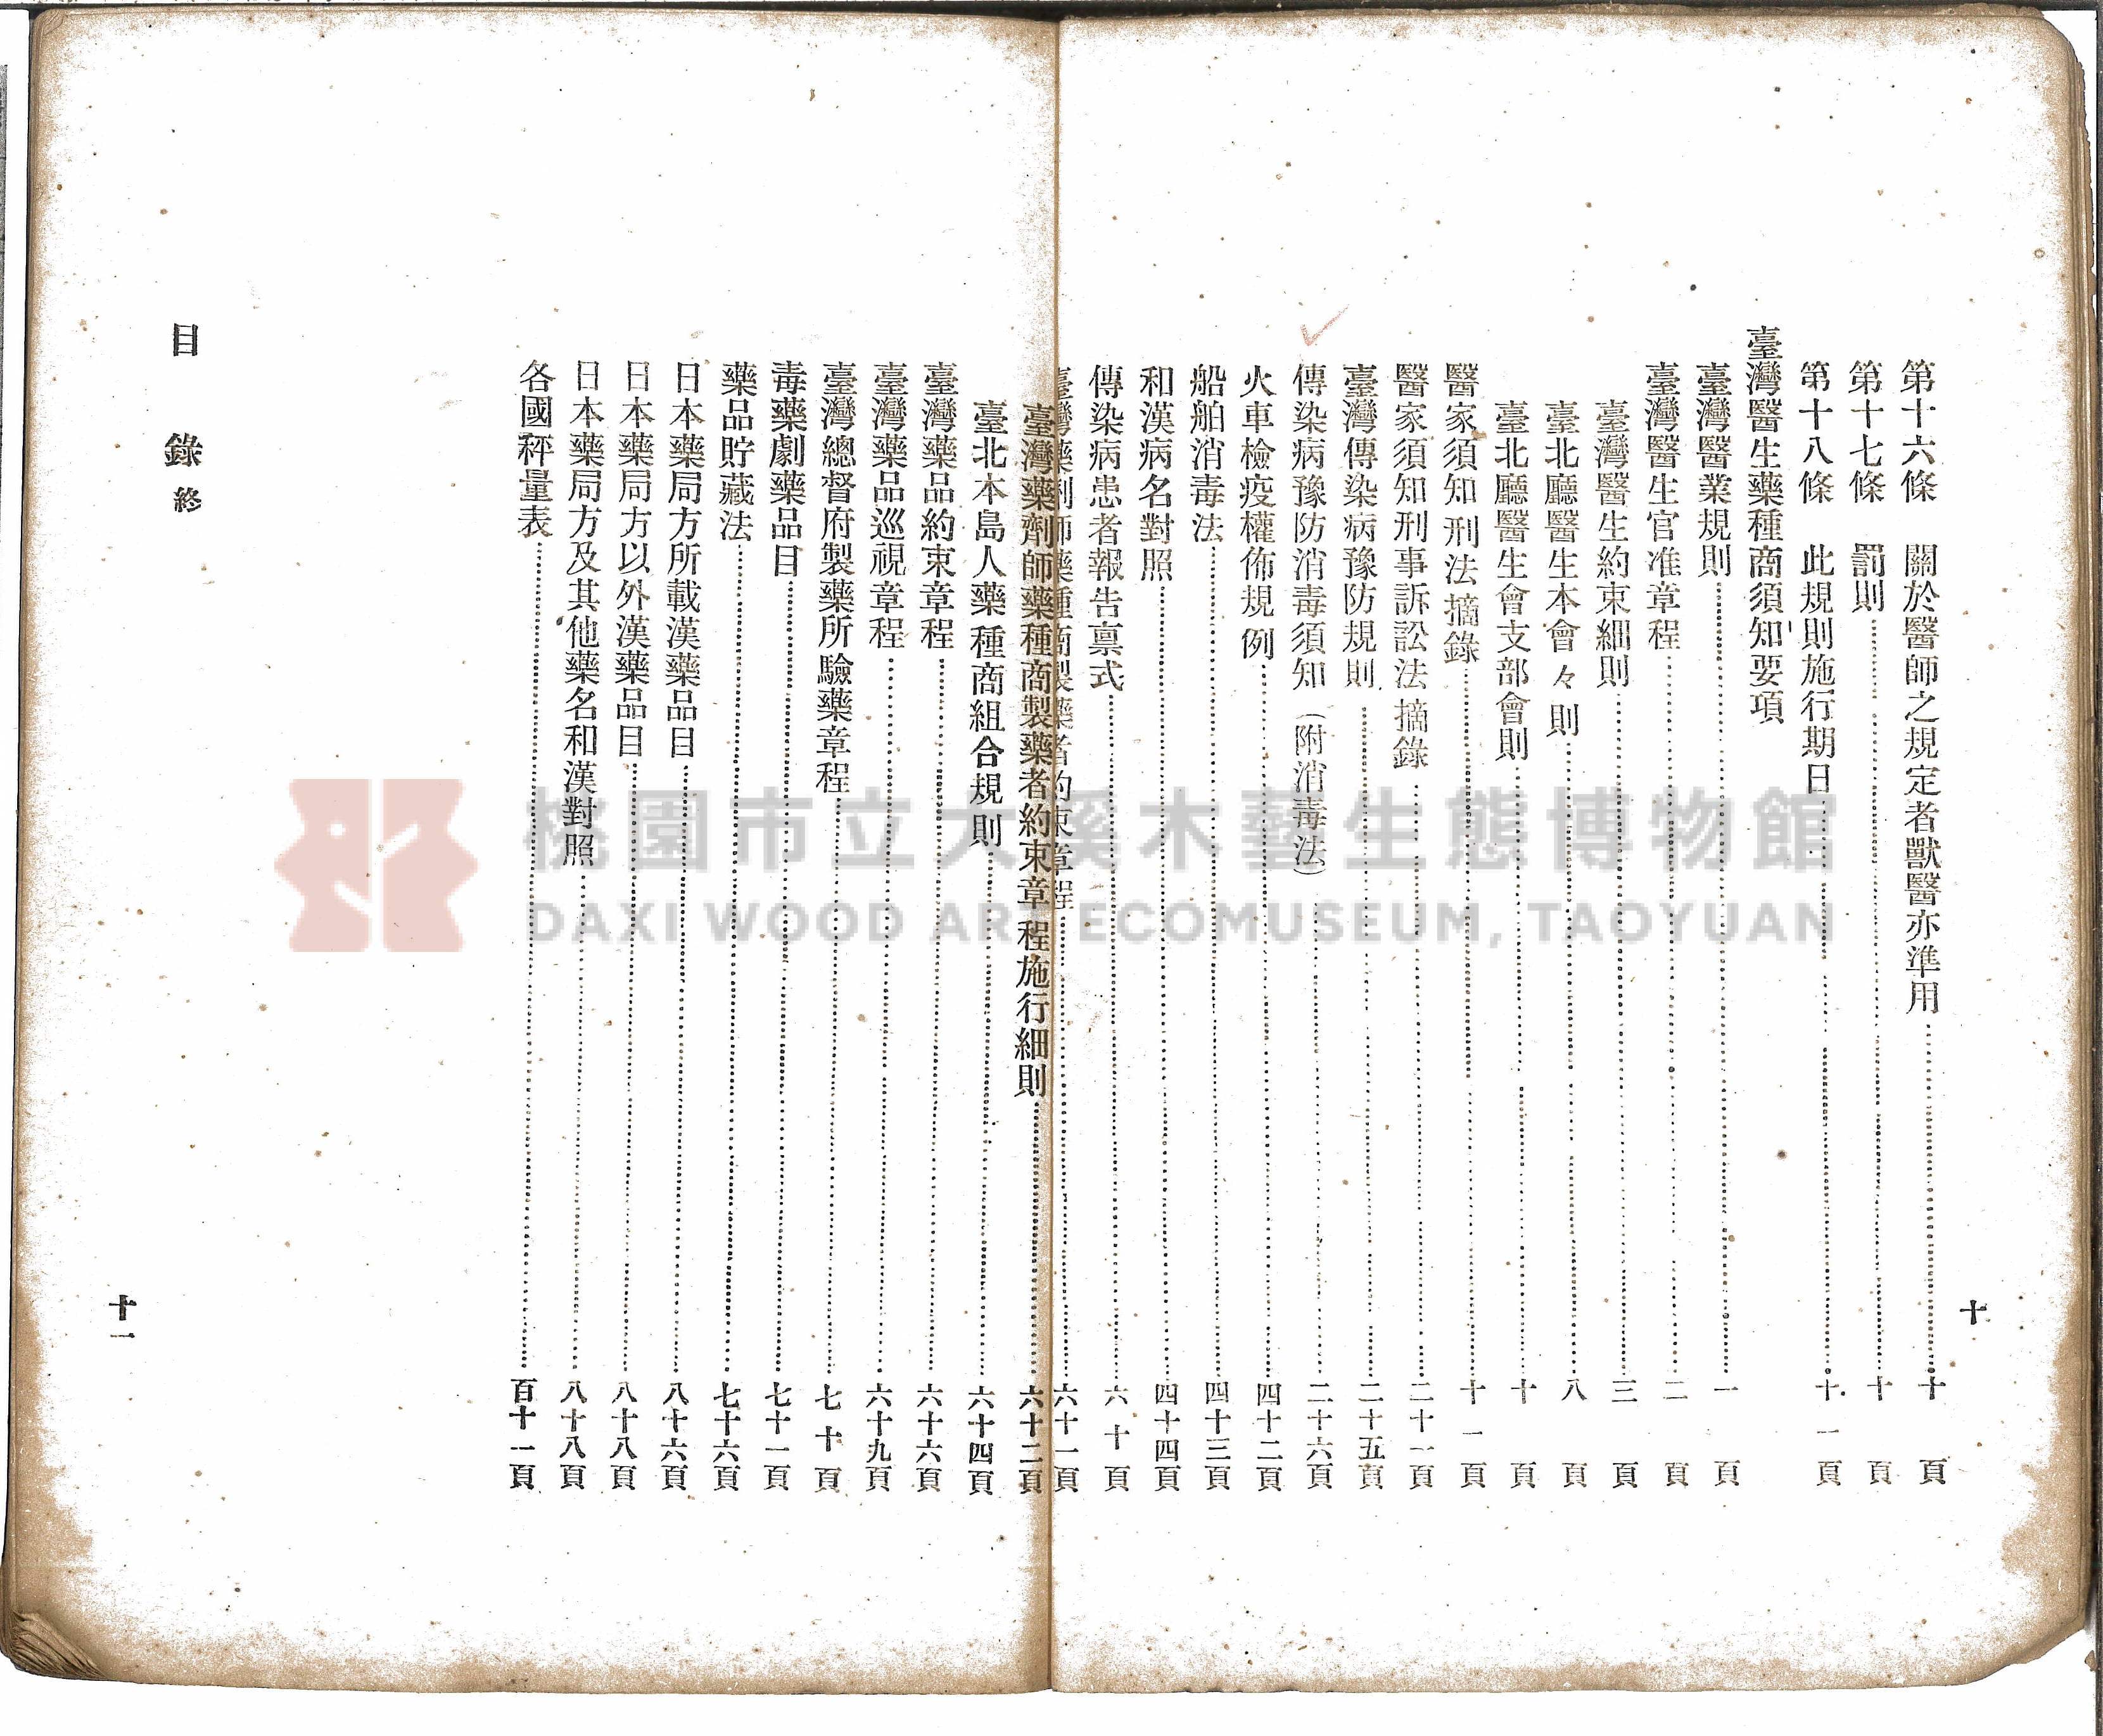 十
第十六條 關於醫師之規定者獸醫亦準用……十 頁
第十七條 罰則……十 頁
第十八條 此規則施行期日……十一 頁
臺灣醫生藥種商須知要項
臺灣醫業規則……一 頁
臺灣醫生官准章程……二 頁
臺灣醫生約束細則……三 頁
臺北廳醫生本會々則……八 頁
臺北廳醫生會支部會則……十 頁
醫家須知刑法摘錄……十一 頁
醫家須知刑事訴訟法摘錄……二十一頁
臺灣傳染病豫防規則……二十五頁
傳染病豫防消毒須知（附消毒法）……二十六頁
火車檢疫權佈規例……四十二頁
船舶消毒法……四十三頁
和漢病名對照……四十四頁
傳染病患者報告禀式……六十頁
臺灣藥劑師藥種商製藥者約束章程……六十一頁
臺灣藥劑師藥種商製藥者約束章程施行細則……六十二頁
臺北本島人藥種商組合規則……六十四頁
臺灣藥品約束章程……六十六頁
臺灣藥品巡視章程……六十九頁
臺灣總督府製藥所驗藥章程……七十頁
毒藥劇藥品目……七十一頁
藥品貯藏法……七十六頁
日本藥局方所載漢藥品目……八十六頁
日本藥局方以外漢藥品目……八十八頁
日本藥局方及其他藥名和漢對照……八十八頁
各國秤量表……百十一頁
目 錄 終
十一
桃園市立大溪木藝生態博物館
DAXI WOOD ART ECOMUSEUM, TAOYUAN